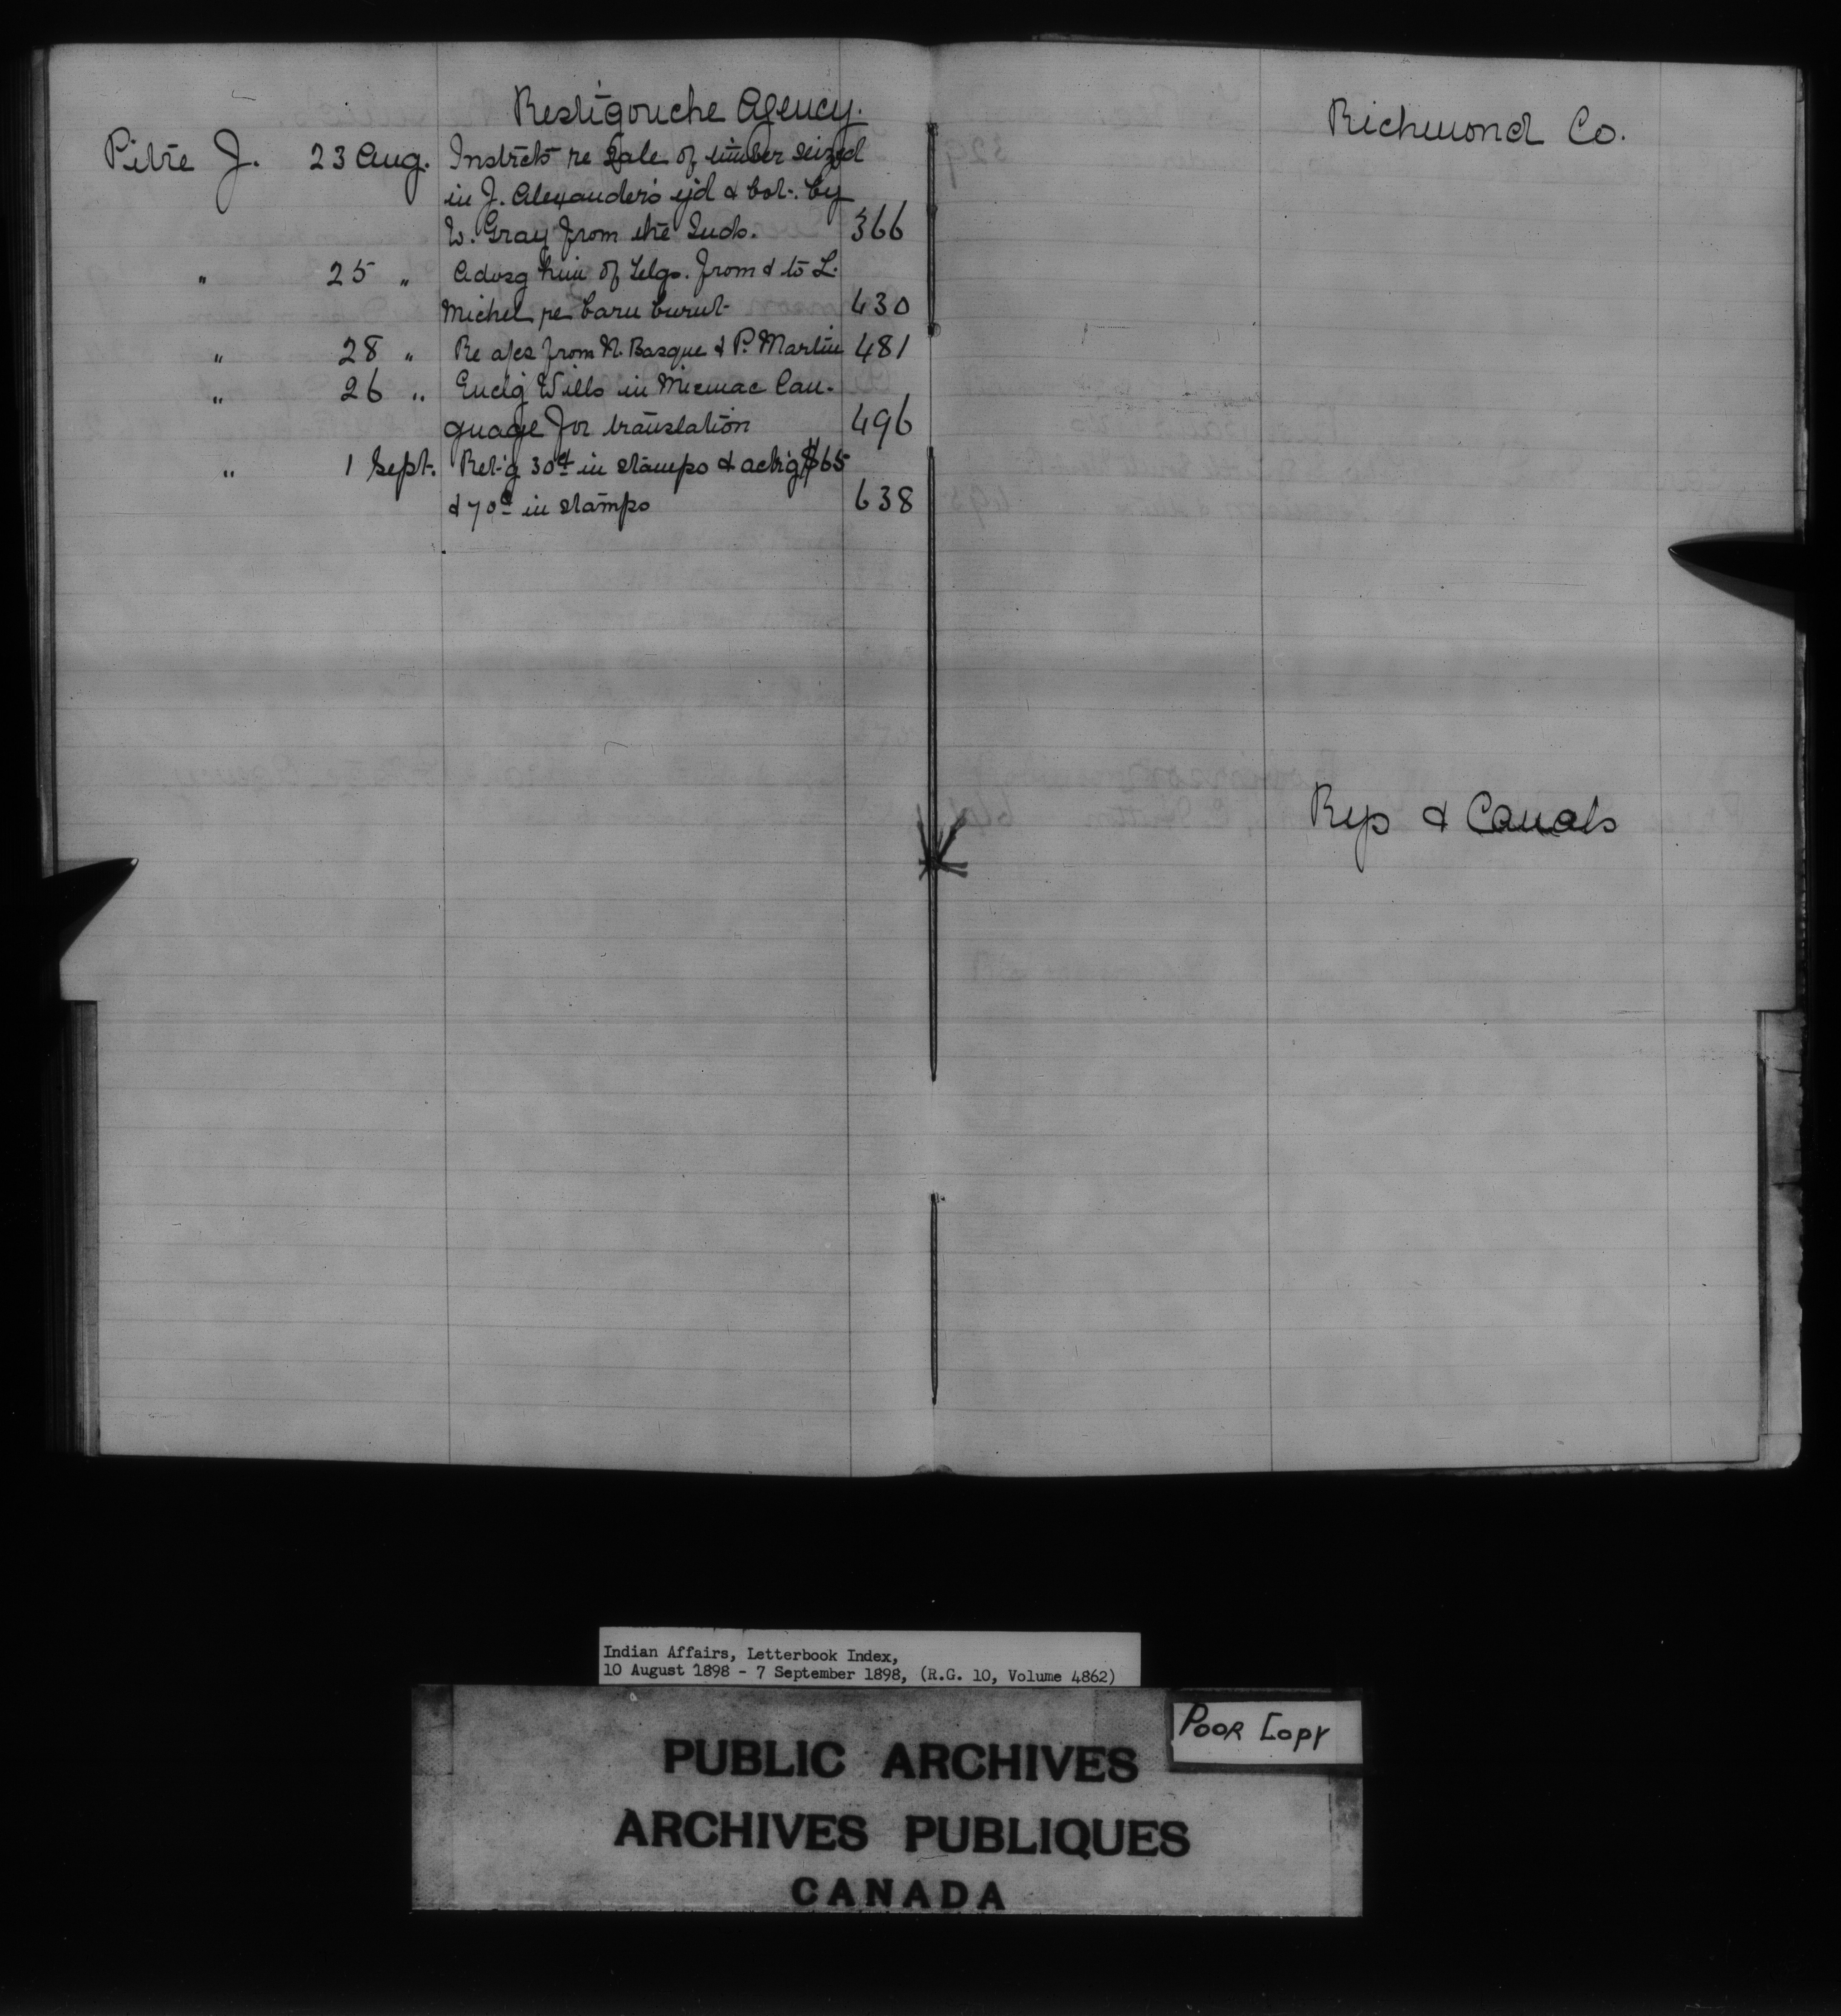 Restigouche Agency.
Pitre J. 23 Aug. Instrcts re Sale of timber seized
in J. Alexander's y'd & bot. by
W. Gray from the Inds. 366
" 25 " Advsg him of telgs. from & to L.
Michel re barn burnt 430
" 28 " Re a/cs from N. Basque & P. Martin 481
" 26 " Enclg Wills in Micmac Lan-
guage for translation 496
" 1 Sept. Ret'g 30¢ in stamps & ack'g $65
& 70¢ in stamps 638
Richmond Co.
Rys & Canals
Indian Affairs, Letterbook Index,
10 August 1898 - 7 September 1898, (R.G. 10, Volume 4862)
Poor Copy
PUBLIC ARCHIVES
ARCHIVES PUBLIQUES
CANADA